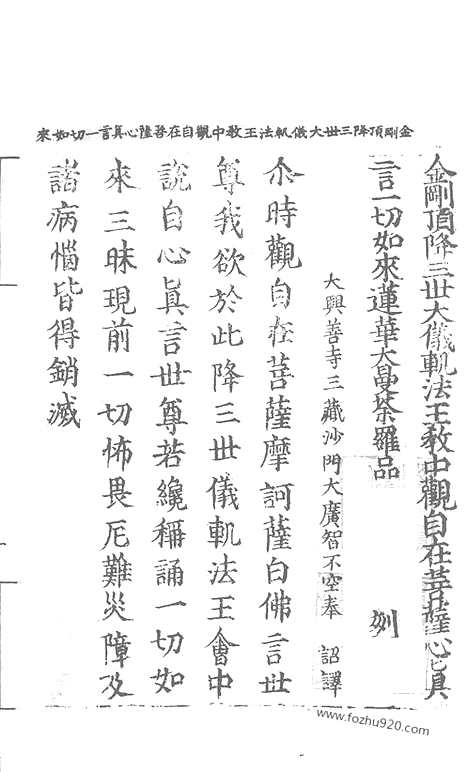 金剛頂降三世大儀軌法王教中觀自在菩薩心真言一切如來
金剛頂降三世大儀軌法王教中觀自在菩薩心真
言一切如來蓮華大曼荼羅品
大興善寺三藏沙門大廣智不空奉 詔譯
尒時觀自在菩薩摩訶薩白佛言世
尊我欲於此降三世儀軌法王會中
說自心真言世尊若纔稱誦一切如
來三昧現前一切怖畏厄難災障及
諸病惱皆得銷滅
www.fozhu920.com